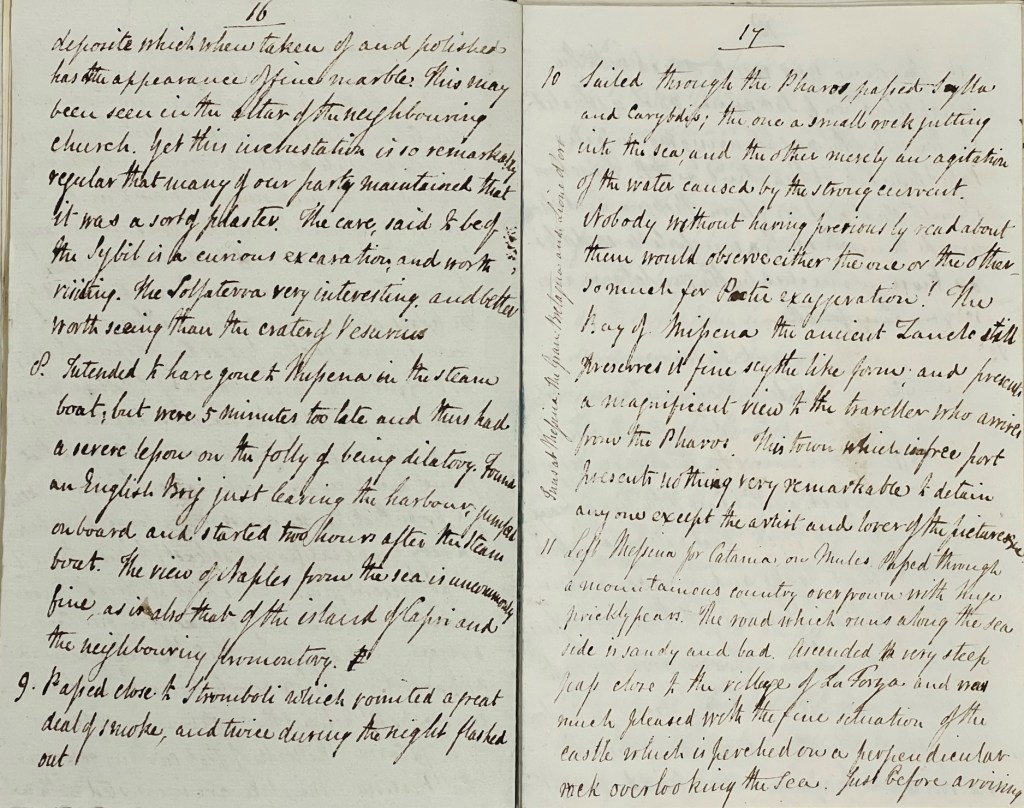 16
deposite which when taken of and polished
has the appearance of fine marble. This may
been seen in the altar of the neighbouring
church. Yet this incrustation is so remarkably
regular that many of our party maintained that
it was a sort of plaster. The cave, said to be of
the Sybil is a curious excavation, and worth
visiting. The Solfaterra very interesting, and better
worth seeing than the crater of Vesuvius
8. Intended to have gone to Messena in the steam
boat; but were 5 minutes too late and thus had
a severe lesson on the folly of being dilatory. Found
an English Brig just leaving the harbour, jumped
onboard and started two hours after the steam
boat. The view of Naples from the sea is uncommonly
fine, as is also that of the island of Capri and
the neighbouring promontory.
9. Passed close to Stromboli which vomited a great
deal of smoke, and twice during the night flashed
out
17
10 Sailed through the Pharos, passed Scylla
and Carybdis; the one a small rock jutting
into the sea, and the other merely an agitation
of the water caused by the strong current.
Nobody without having previously read about
them would observe either the one or the other
so much for Poetic exaggeration! The
Bay of Messena the ancient Zancle still
preserves it fine scythe like form, and presents
a magnificent view to the traveller who arrives
from the Pharos. This town which is a free port
presents nothing very remarkable to detain
anyone except the artist and lover of the picturesque
11 Left Messina for Catania on Mules. Passed through
a mountainous country overgrown with huge
pricklypears. The road which runs along the sea
side is sandy and bad. Ascended a very steep
pass close to the village of La Forza and was
much pleased with the fine situation of the
castle which is perched on a perpendicular
rock overlooking the sea. Just before arriving
Inns at Messina, the Gran Bretagna and Lione d'oro